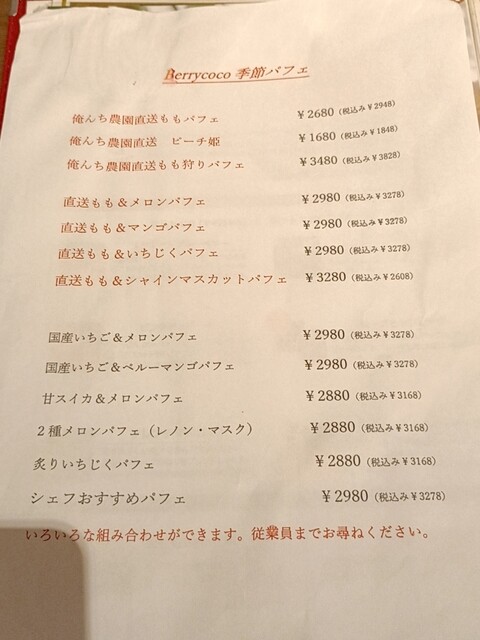 Berrycoco 季節パフェ
俺んち農園直送ももパフェ ￥2680（税込み￥2948）
俺んち農園直送 ピーチ姫 ￥1680（税込み￥1848）
俺んち農園直送もも狩りパフェ ￥3480（税込み￥3828）
直送もも＆メロンパフェ ￥2980（税込み￥3278）
直送もも＆マンゴパフェ ￥2980（税込み￥3278）
直送もも＆いちじくパフェ ￥2980（税込み￥3278）
直送もも＆シャインマスカットパフェ ￥3280（税込み￥2608）
国産いちご＆メロンパフェ ￥2980（税込み￥3278）
国産いちご＆ペルーマンゴパフェ ￥2980（税込み￥3278）
甘スイカ＆メロンパフェ ￥2880（税込み￥3168）
２種メロンパフェ（レノン・マスク） ￥2880（税込み￥3168）
炙りいちじくパフェ ￥2880（税込み￥3168）
シェフおすすめパフェ ￥2980（税込み￥3278）
いろいろな組み合わせができます。従業員までお尋ねください。